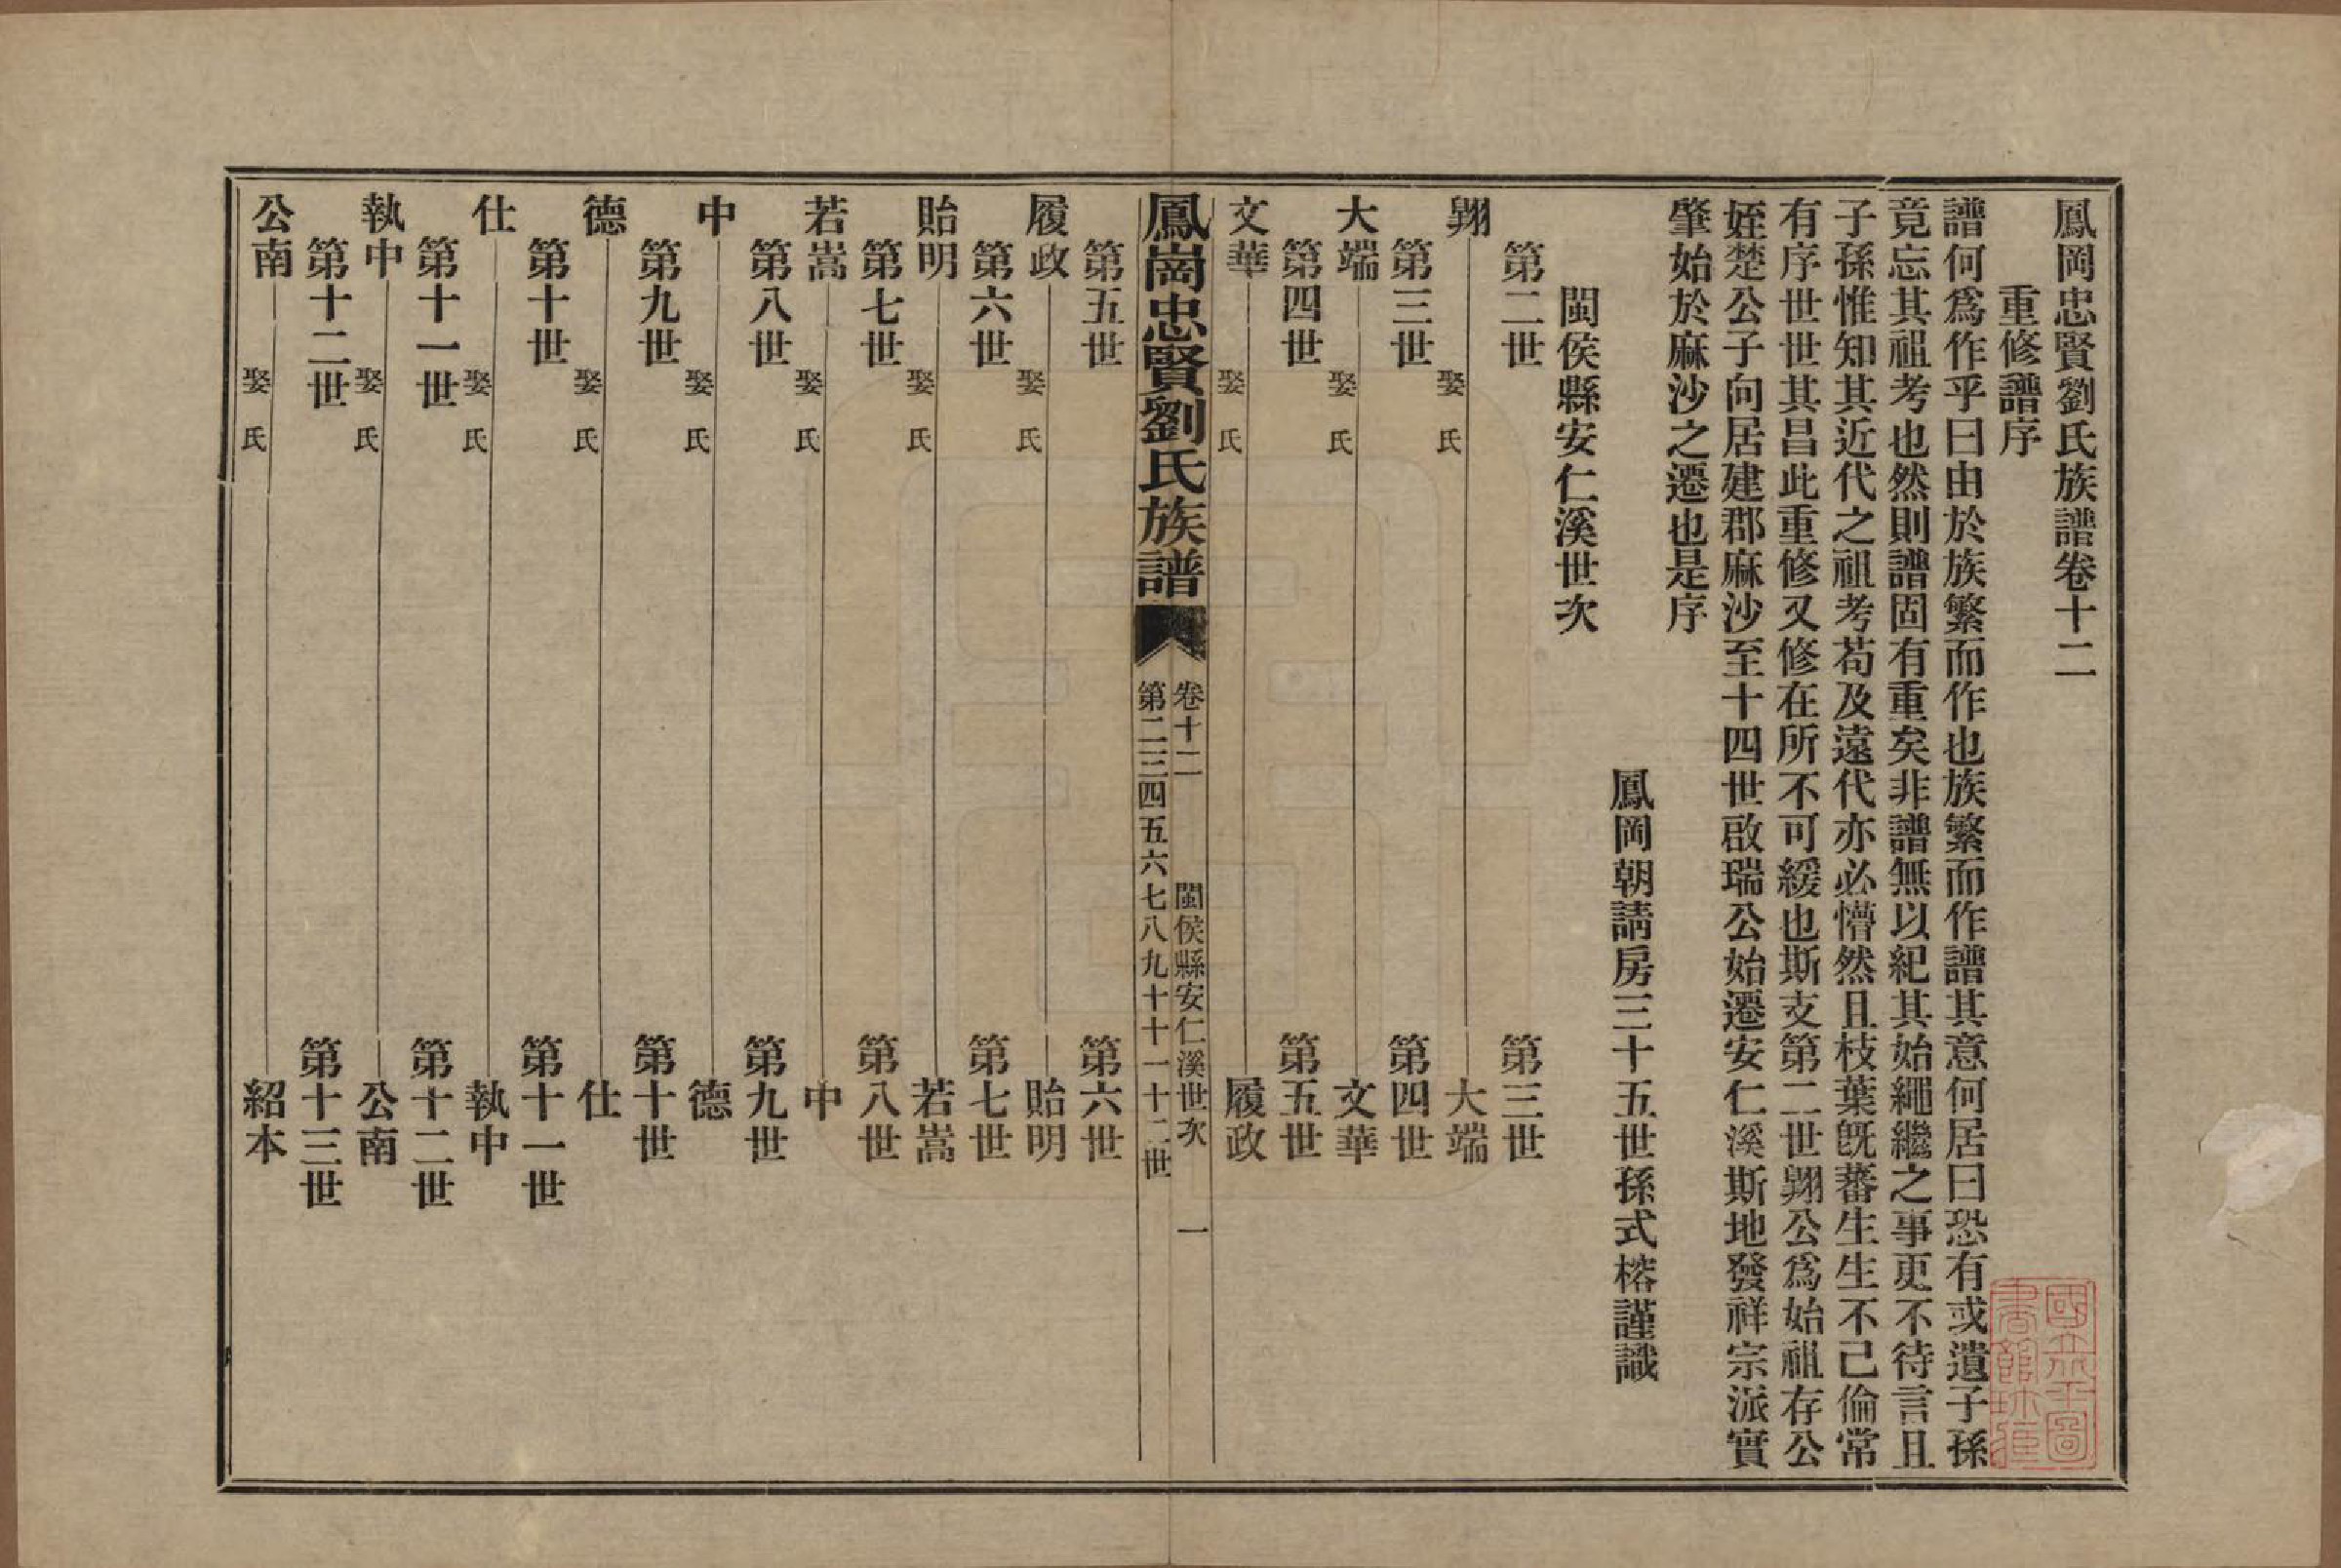 鳳岡忠賢劉氏族譜卷十二
重修譜序
譜何爲作乎曰由於族繁而作也族繁而作譜其意何居曰恐有或遺子孫
竟忘其祖考也然則譜固有重矣非譜無以紀其始繩繼之事更不待言且
子孫惟知其近代之祖考苟及遠代亦必懵然且枝葉旣蕃生生不已倫常
有序世世其昌此重修又修在所不可緩也斯支第二世翺公爲始祖存公
姪楚公子向居建郡麻沙至十四世啟瑞公始遷安仁溪斯地發祥宗派實
肇始於麻沙之遷也是序
鳳岡朝請房三十五世孫式榕謹識
閩侯縣安仁溪世次
第二世 第三世
翺 娶 氏 大端
第三世 第四世
大端 娶 氏 文華
第四世 第五世
文華 娶 氏 履政
鳳崗忠賢劉氏族譜 卷十二 閩侯縣安仁溪世次 一
第二三四五六七八九十十一十二世
第五世 第六世
履政 娶 氏 貽明
第六世 第七世
貽明 娶 氏 若嵩
第七世 第八世
若嵩 娶 氏 中
第八世 第九世
中 娶 氏 德
第九世 第十世
德 娶 氏 仕
第十世 第十一世
仕 娶 氏 執中
第十一世 第十二世
執中 娶 氏 公南
第十二世 第十三世
公南 娶 氏 紹本